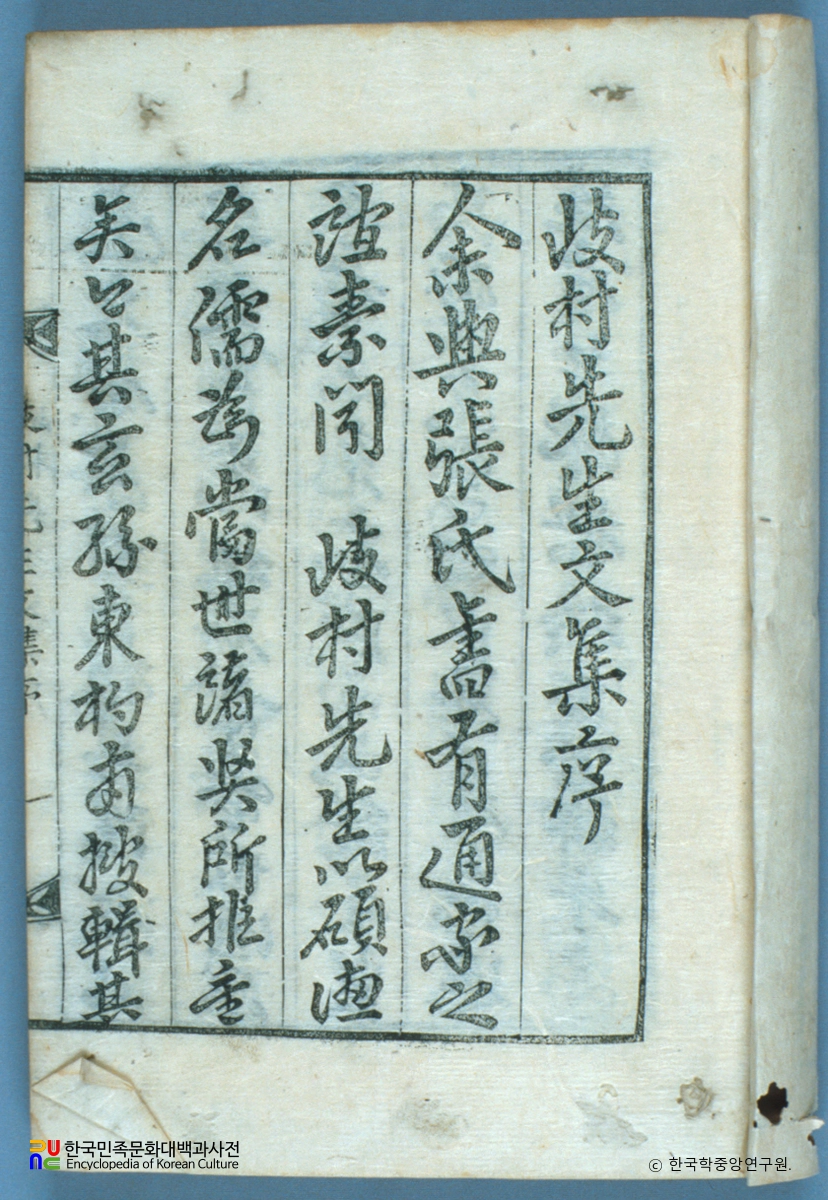 歧村先生文集序
余與張氏舊有通家之
誼素聞 歧村先生以碩德
名儒爲當世諸賢所推重
矣今其玄孫東杓甫搜輯其
村先生文集序 一
한국민족문화대백과사전
Encyclopedia of Korean Culture
© 한국학중앙연구원.